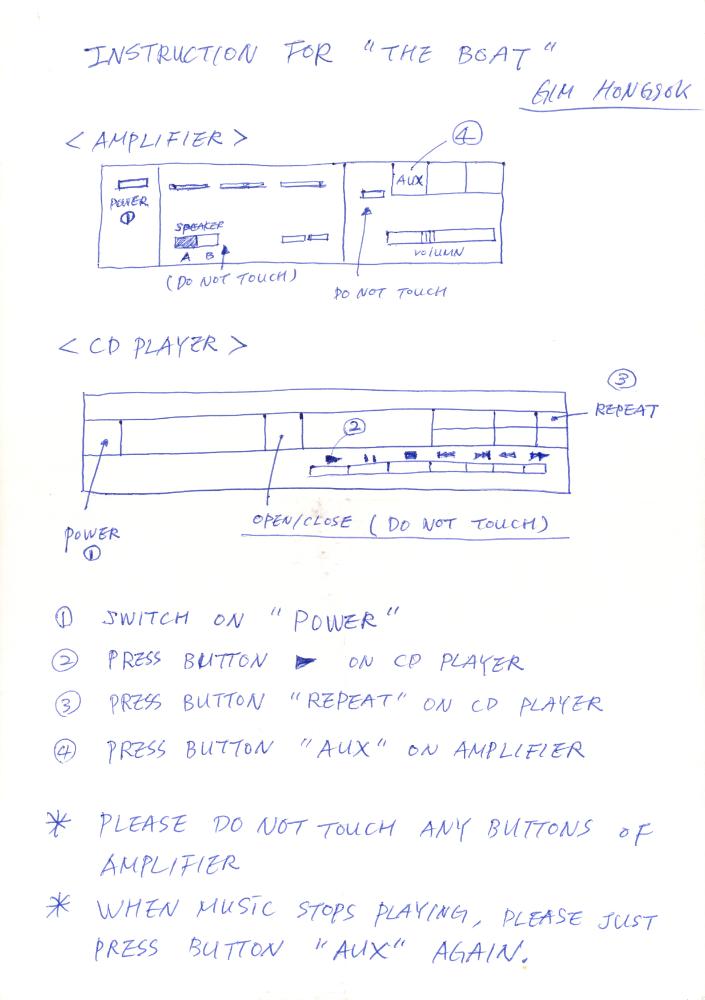 INSTRUCTION FOR "THE BOAT"
GIM HONGSOK
< AMPLIFIER >
④
AUX
POWER
①
SPEAKER
A B
VOlUMN
(DO NOT TOUCH)
DO NOT TOUCH
< CD PLAYER >
③
REPEAT
②
▶ ❚❚ ■ |◀◀ ▶▶| ◀◀ ▶▶
OPEN/CLOSE (DO NOT TOUCH)
POWER
①
① SWITCH ON "POWER"
② PRESS BUTTON ▶ ON CD PLAYER
③ PRESS BUTTON "REPEAT" ON CD PLAYER
④ PRESS BUTTON "AUX" ON AMPLIFIER
* PLEASE DO NOT TOUCH ANY BUTTONS OF
AMPLIFIER
* WHEN MUSIC STOPS PLAYING, PLEASE JUST
PRESS BUTTON "AUX" AGAIN.